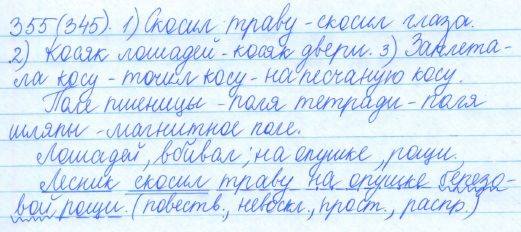 355(345). 1) Скосил траву - скосил глаза.
2) Косяк лошадей - косяк двери. 3) Заплета-
ла косу - точил косу - на песчаную косу.
Поле пшеницы - поля тетради - поля
шляпы - магнитное поле.
Лошадей, вбивал; на опушке, рощи.
Лесник скосил траву на опушке березо-
вой рощи. (повеств., невоскл., прост., распр.)